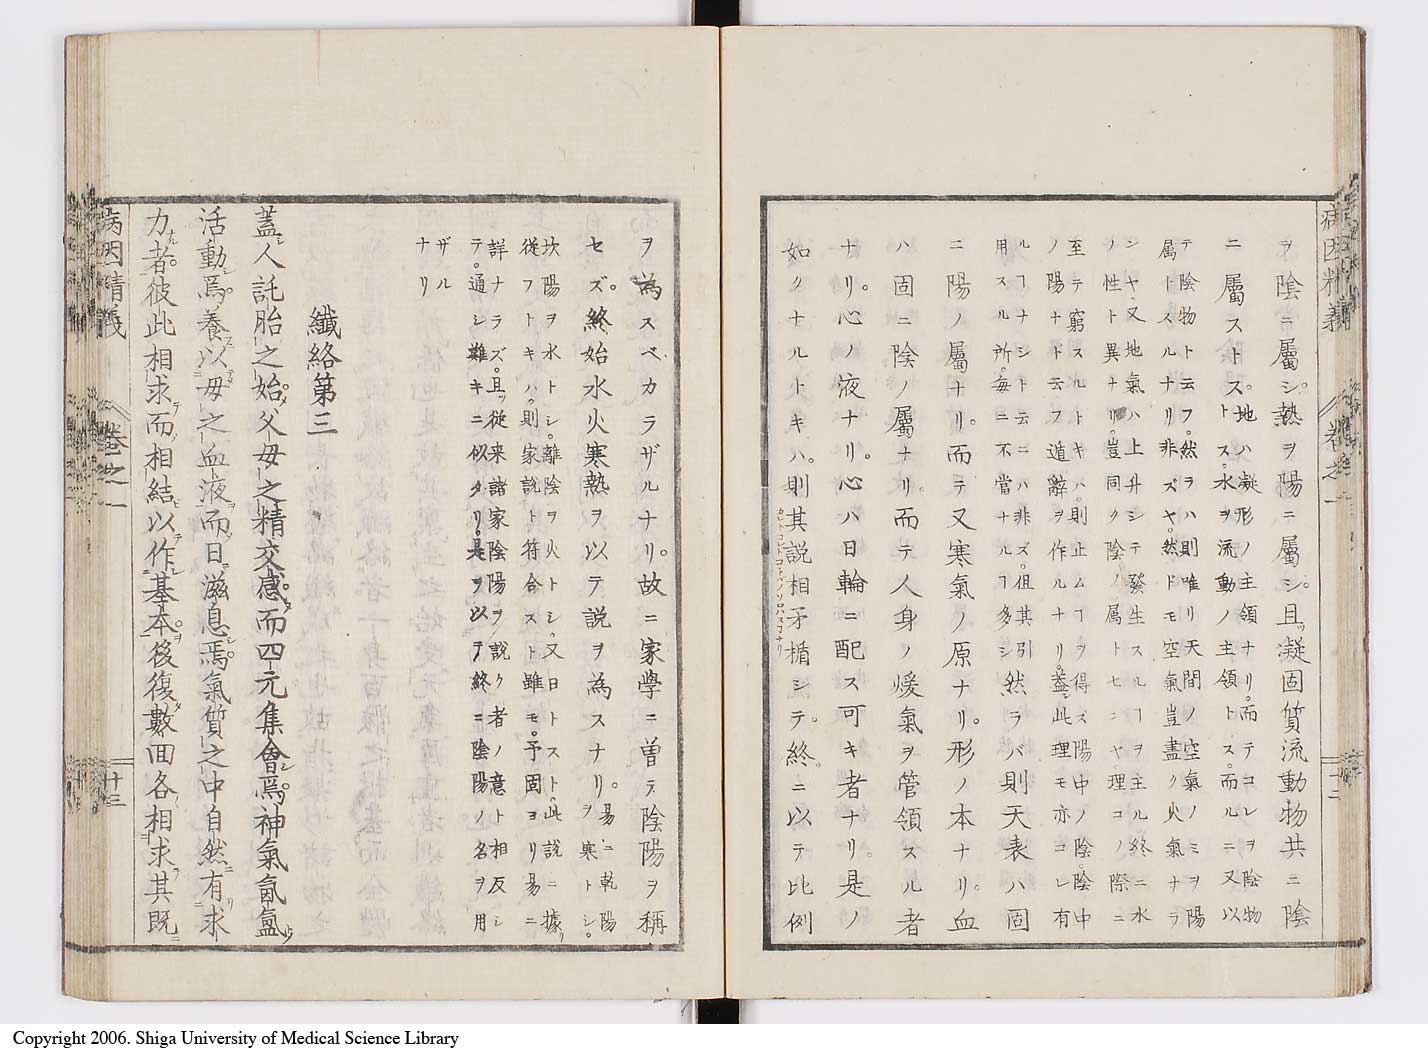 ヲ陰ニ屬シ。熱ヲ陽ニ屬シ。且ツ凝固質流動物共ニ陰
ニ屬ストス。地ハ凝形ノ主領ナリ。而テコレヲ陰物
トス。水ヲ流動ノ主領トス。而ルニ又以
テ陰物ト云フ。然ラハ則唯リ天間ノ空氣ノミヲ陽
属トスルナリ非ズヤ。然ドモ空氣豈盡ク火氣ナラ
シヤ、又地氣ハ上升シテ發生スルヿヲ主ル終ニ水
ノ性ト異ナリ。豈同ク陰ノ属トセニヤ理コノ際ニ
至テ窮スルトキハ。則止ムヿヲ得ズ陽中ノ陰。陰中
ノ陽ナドト云フ遁辭ヲ作ルナリ。蓋シ此理モ亦コレ有
ルヿナシト云ニハ非ズ。但其引然ラバ則天表ハ固
用スル所。毎ニ不當ナルヿ多シ
ニ陽ノ屬ナリ。而テ又寒氣ノ原ナリ。形ノ本ナリ。血
ハ固ニ陰ノ屬ナリ。而テ人身ノ煖氣ヲ管領スル者
ナリ。心ノ液ナリ。心ハ日輪ニ配ス可キ者ナリ。是ノ
如クナルトキハ。則其説相矛楯シテ。終ニ以テ比例
病因精義
卷之一
十二
ヲ為スベカラザルナリ。故ニ家学ニ曽テ陰陽ヲ稱
セズ。終始水火寒熱ヲ以テ説ヲ為スナリ。易ニ乾陽
ヲ寒トシ。
坎陽ヲ水トシ。離陰ヲ火トシ。又日トスト。此説ニ據リ
従フトキハ。則家説ト符合スト雖モ。予固ヨリ易ニ
詳ナラズ。且ツ従来諸家陰陽ヲ説ク者ノ意ト相反シ
テ。通シ難キニ似タリ。是ヲ以テ終ニ陰陽ノ名ヲ用
ザル
ナリ
纖絡第三
蓋シ人託胎之始。父母之精交感。而四元集會焉。神氣氤氳
活動焉。養以母之血液。而日滋息焉。氣質之中自然有求
力者。彼此相求而相結以作基本。後復數回各相求其既
病因精義
卷之一
十三